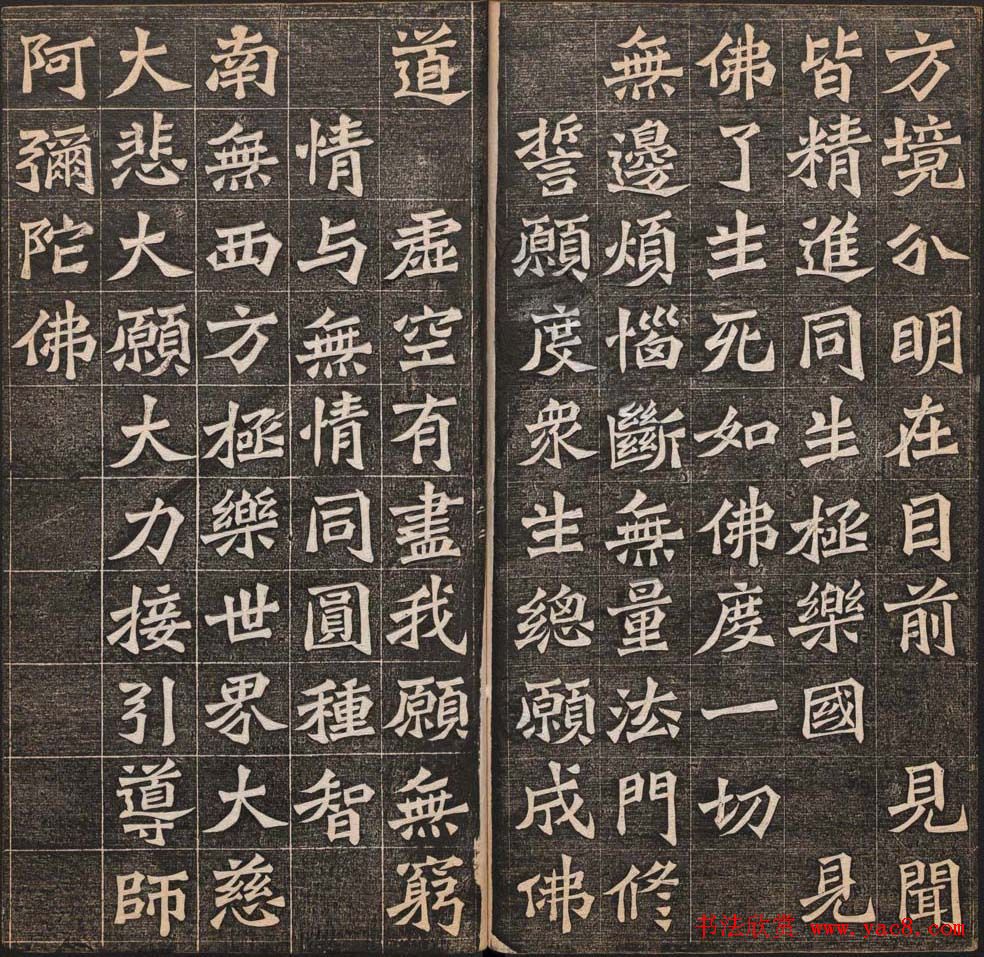 方境分明在目前　見聞
皆精進同生極樂國　見
佛了生死如佛度一切
無邊煩惱斷無量法門修
誓願度衆生總願成佛
道　虛空有盡我願無窮
情与無情同圓種智
南無西方極樂世界大慈
大悲大願大力接引導師
阿彌陀佛
书法欣赏 www.yac8.com